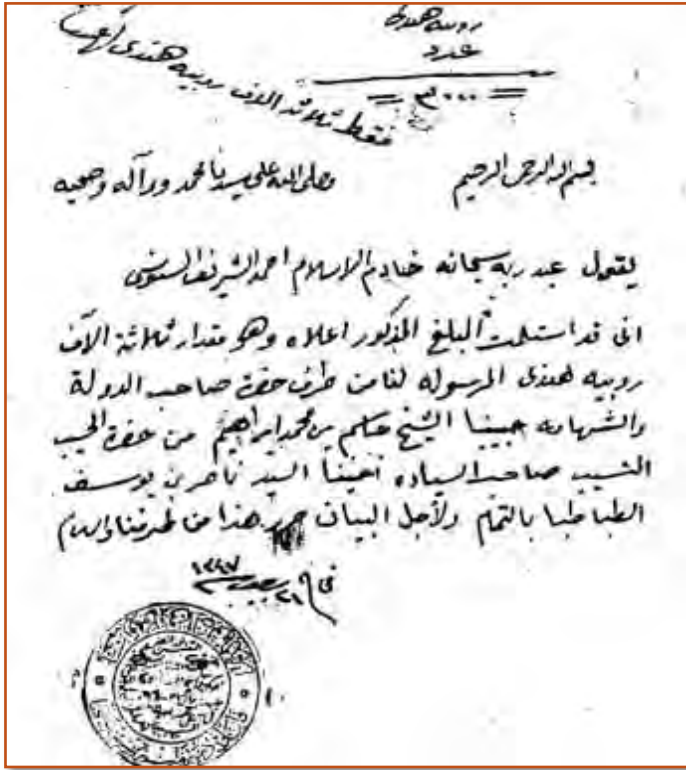 روبيه هندى
عدد
= ٣٠٠٠ =
فقط ثلاثة الاف روبيه هندى لا غير
بسم الله الرحمن الرحيم وصلى الله على سيدنا محمد وآله وصحبه
يقول عبد ربه سبحانه خادم الاسلام احمد الشريف السنوسى
انى قد استلمت المبلغ المذكور اعلاه وهو مقدار ثلاثة الآف
روبيه هندى المرسوله لنا من طرف حضرة صاحب الدولة
والشهامه حبيبنا الشيخ بن محمد ابراهيم من حضرة الحسيب
النسيب صاحب السياده أخينا السيد بن يوسف
الطباطبا بالتمام ولأجل البيان حرر هذا من طرفنا والسلام
فى ٢١